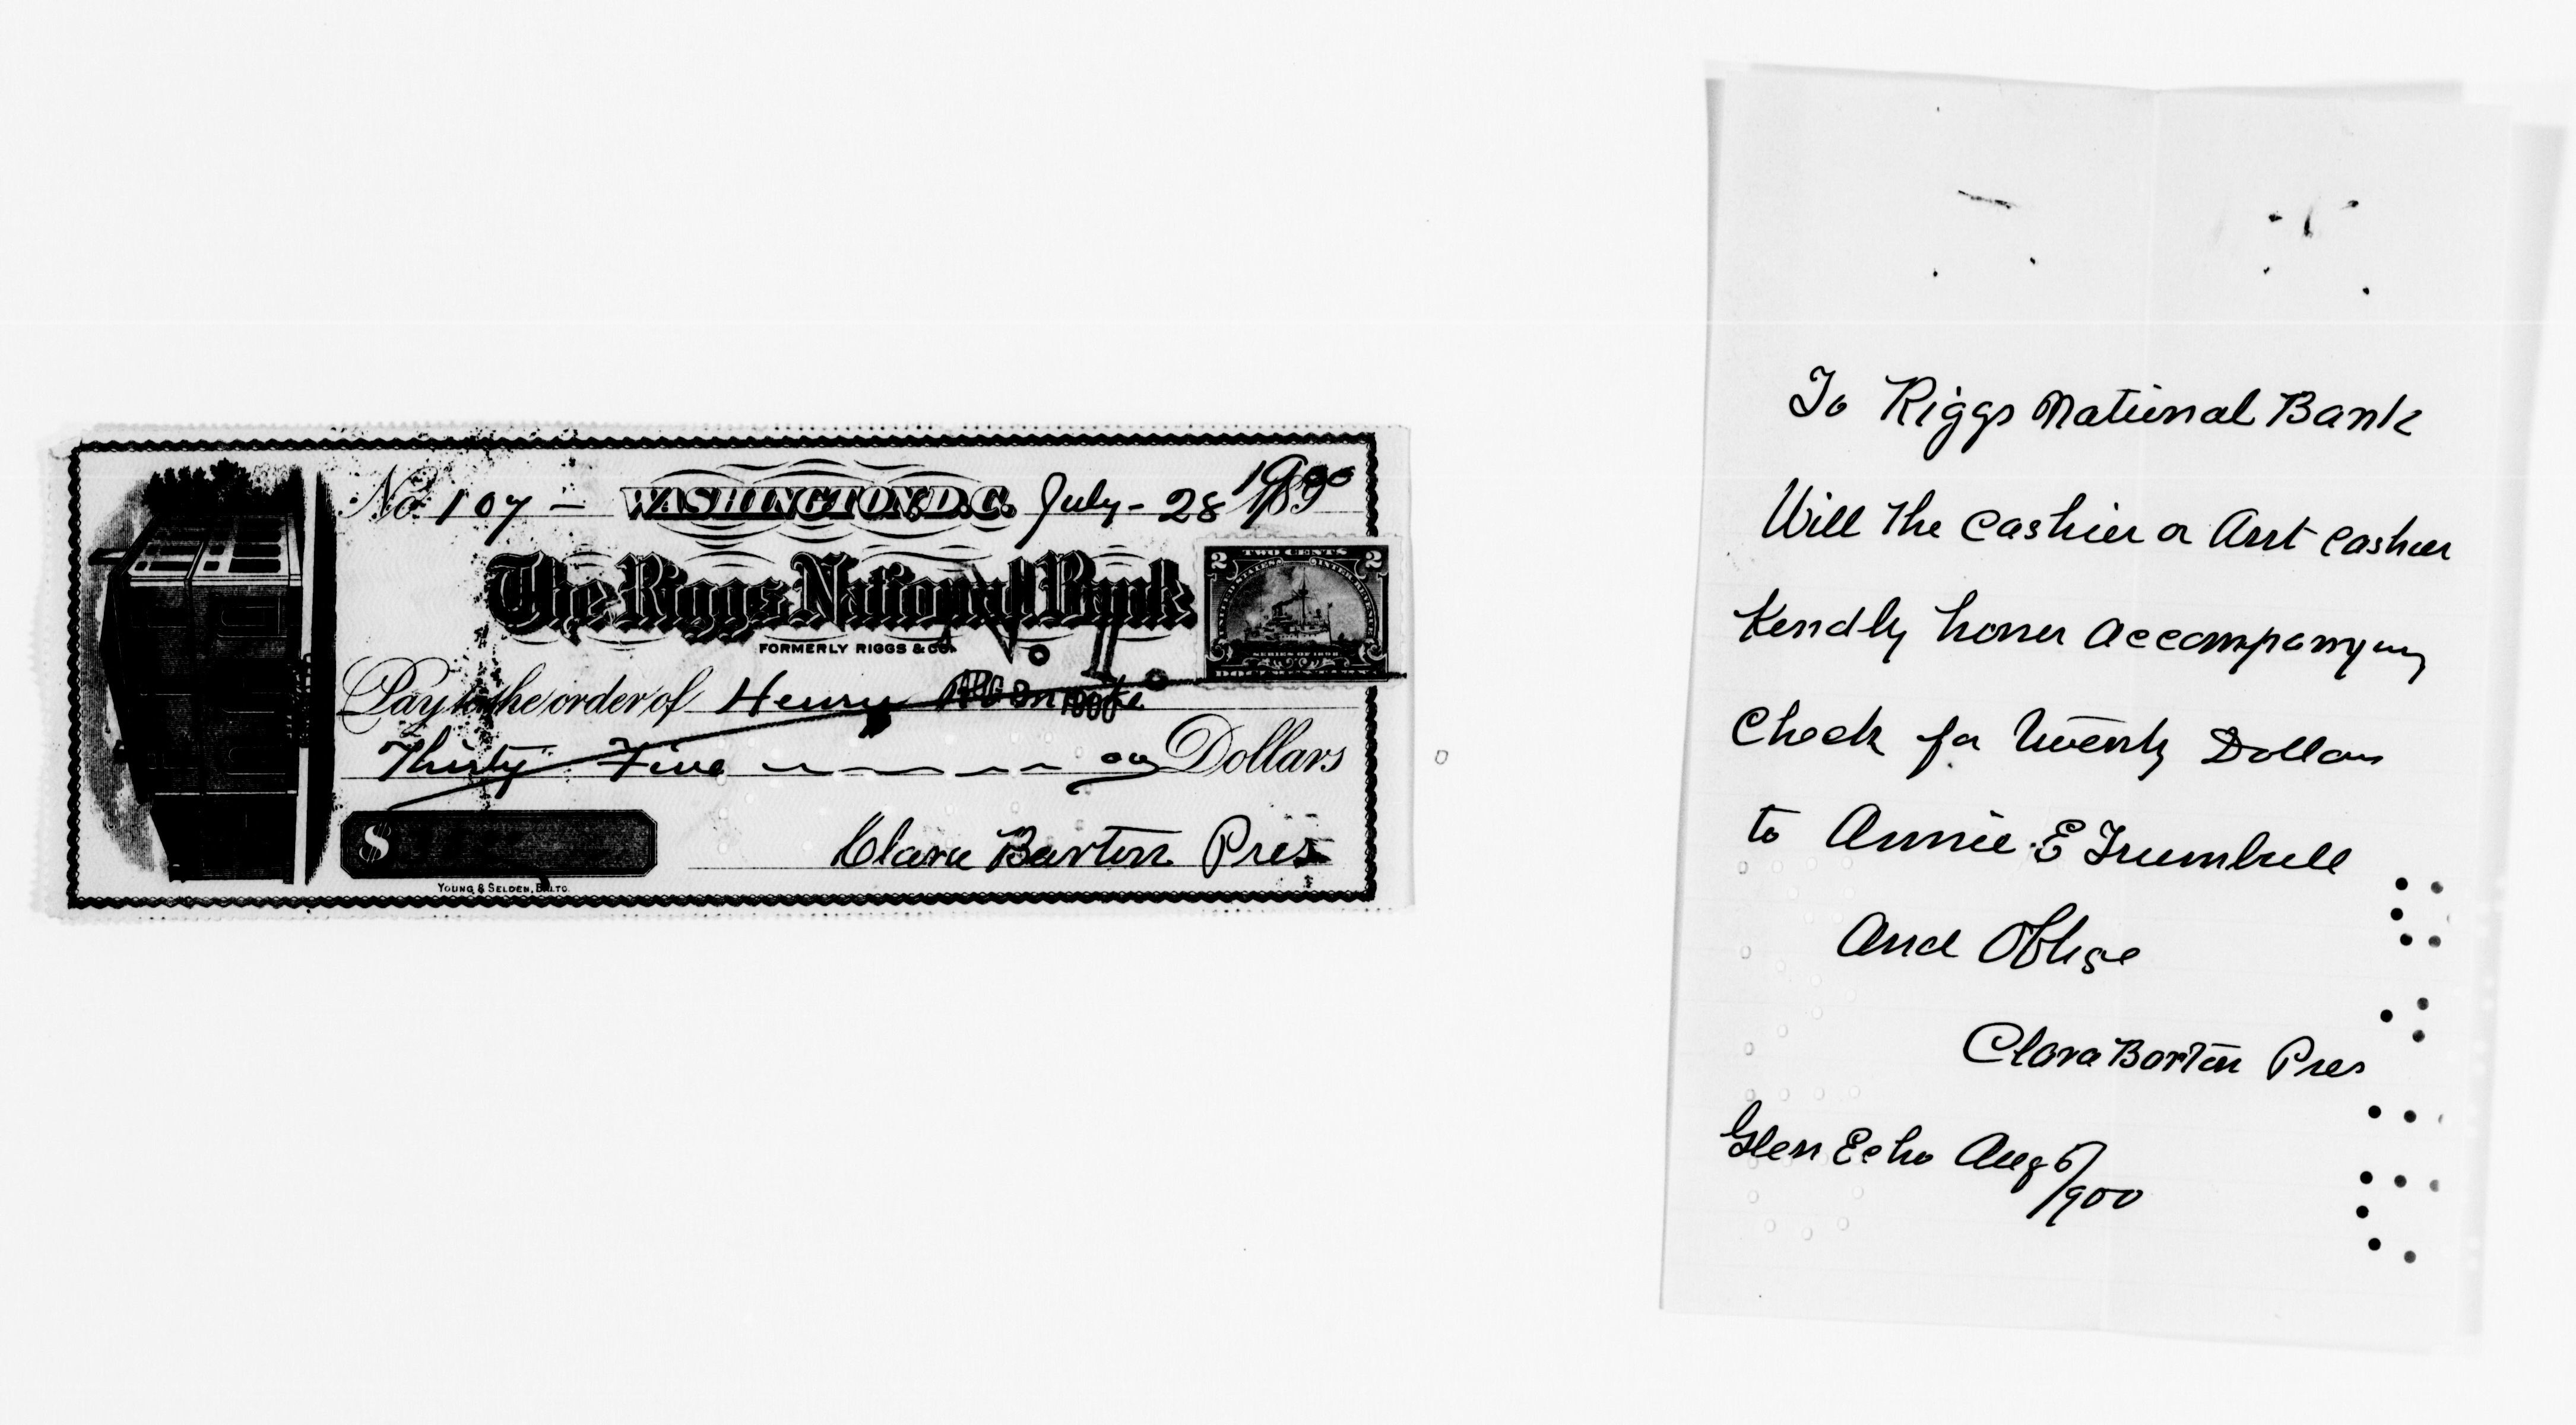 No. 107 — WASHINGTON, D.C. July - 28 1900 189
TWO CENTS
2 2
UNITED STATES INTER. REVENUE
The Riggs National Bank
FORMERLY RIGGS & CO.
SERIES OF 1898
DOCUMENTARY
Pay to the order of Henry
AUG 1900
Thirty Five 00 Dollars
$
Clara Barton Pres
YOUNG & SELDEN, BALTO.
To Riggs National Bank
Will the Cashier or Asst Cashier
Kindly honor accompanying
Check for Twenty Dollars
to Annie E Trumbull
And Oblige
Clara Barton Pres
Glen Echo Aug 6/
1900